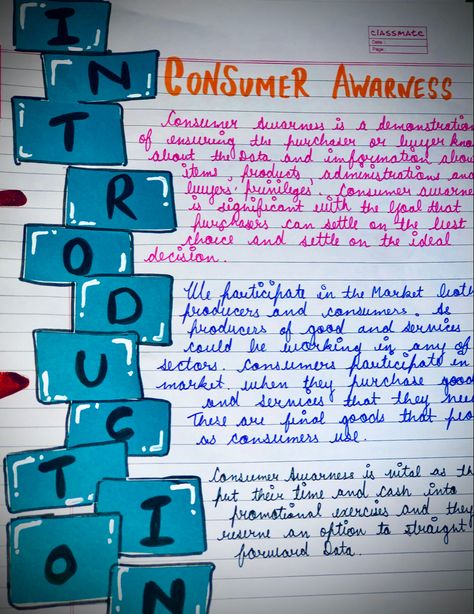 INTRODUCTION
classmate
Date :
Page :
CONSUMER AWARNESS
Consumer Awarness is a demonstration
of ensuring the purchaser or buyer know
about the Data and information abou
items, products, administrations and
buyers' privileges. Consumer awarne
is significant with the Goal that
purchasers can settle on the best
choice and settle on the ideal
decision.
We participate in the Market both
producers and consumers. As
producers of good and services
could be working in any of
sectors. Consumers participate in
market when they purchase goo
and services that they nee
These are final goods that peo
as consumers use.
Consumer Awarness is vital as th
put their time and cash into
promotional exercises and they
reserve an option to straight
forward Data.